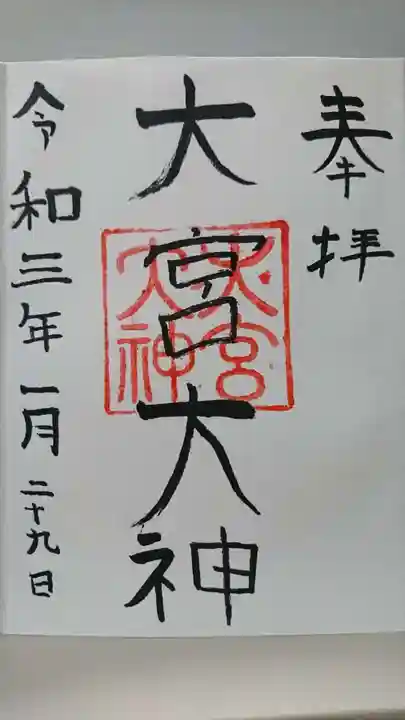 奉拝
大宮大神
大宮
大神
令和三年一月二十九日